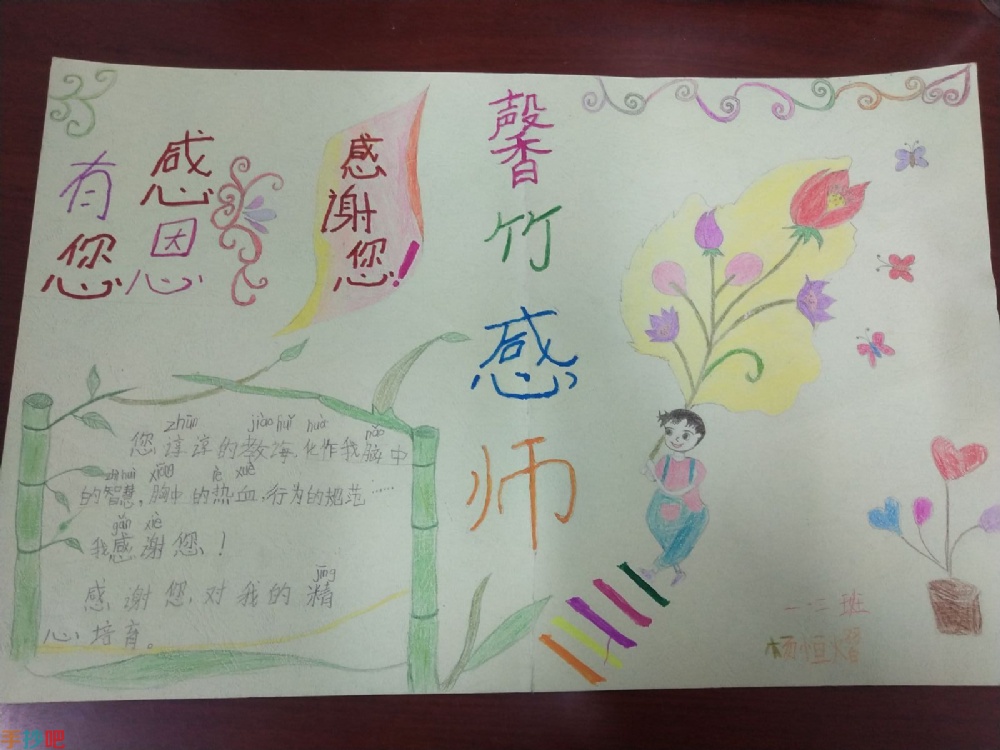 有您
感恩
感谢您!
馨香竹感师
zhūn jiào huǐ huà nǎo
您谆谆的教诲,化作我脑中
zhì huì xiōng rè xuè
的智慧,胸中的热血,行为的规范……
gǎn xiè
我感谢您!
jīng
感谢您,对我的精
心培育。
一.二班
杨恒
手抄吧